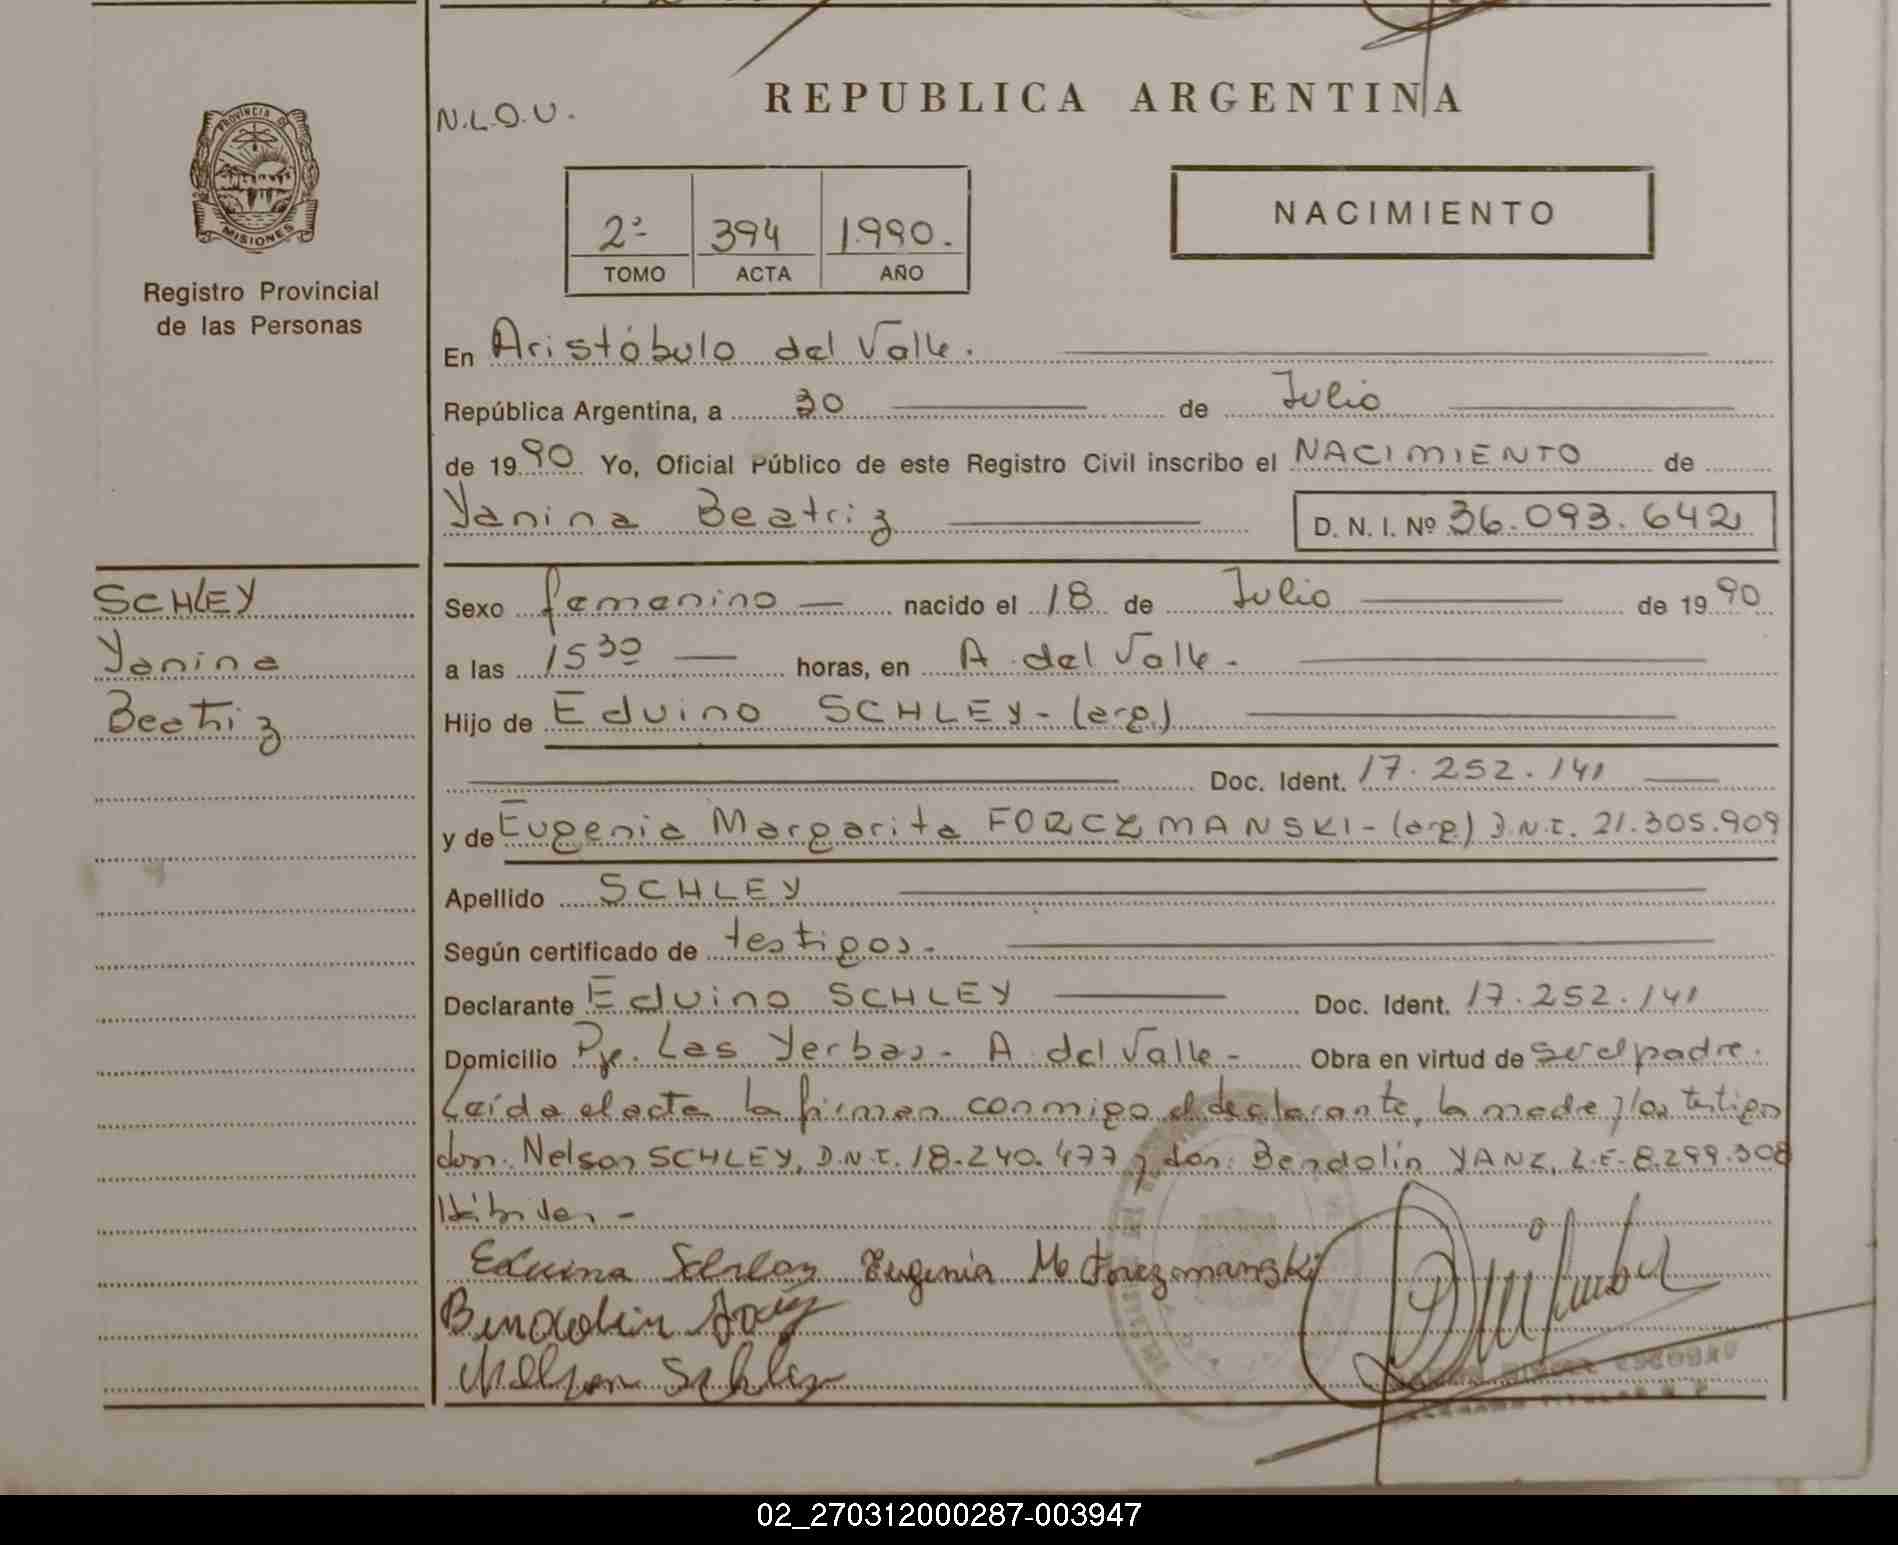 REPUBLICA ARGENTINA
N.L.O.U.
PROVINCIA D MISIONES
Registro Provincial
de las Personas
2ª 394 1.990.
TOMO ACTA AÑO
NACIMIENTO
En Aristóbulo del Valle.
República Argentina, a 30 de Julio
de 1990 Yo, Oficial Público de este Registro Civil inscribo el NACIMIENTO de
Yanina Beatriz D. N. I. Nº 36.093.642
SCHLEY
Yanina
Beatriz
Sexo femenino nacido el 18 de Julio de 1990
a las 15 30 horas, en A. del Valle.
Hijo de Eduino SCHLEY - (arg.)
Doc. Ident. 17.252.141
y de Eugenia Margarita FORCZMANSKI - (arg) D.N.I. 21.305.909
Apellido SCHLEY
Según certificado de testigos.
Declarante Eduino SCHLEY Doc. Ident. 17.252.141
Domicilio Pje. Las Yerbas - A. del Valle - Obra en virtud de ser el padre.
Leída el acta la firman conmigo el declarante, la madre y los testigos
don: Nelson SCHLEY, D.N.I. 18.240.477 y don: Bendolin YANZ, L.E. 8.299.308
Hábiles -
Eduino Schley Eugenia M. Forczmanski
Bendolin
Nelson Schley
ESCOBAR
TITULAR
02_270312000287-003947